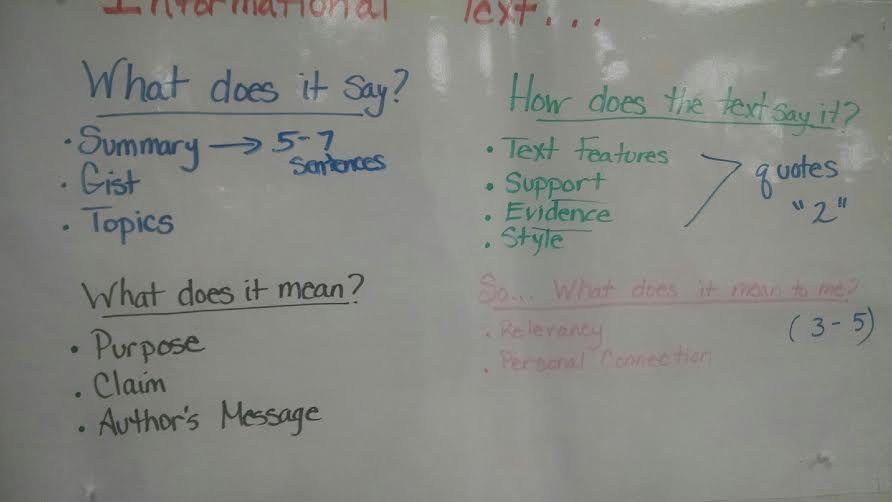 Informational Text...
What does it say?
• Summary → 5-7
sentences
• Gist
• Topics
How does the text say it?
• Text features
• Support
• Evidence
• Style
quotes
"2"
What does it mean?
• Purpose
• Claim
• Author's Message
So... What does it mean to me?
• Relevancy
(3-5)
• Personal Connection